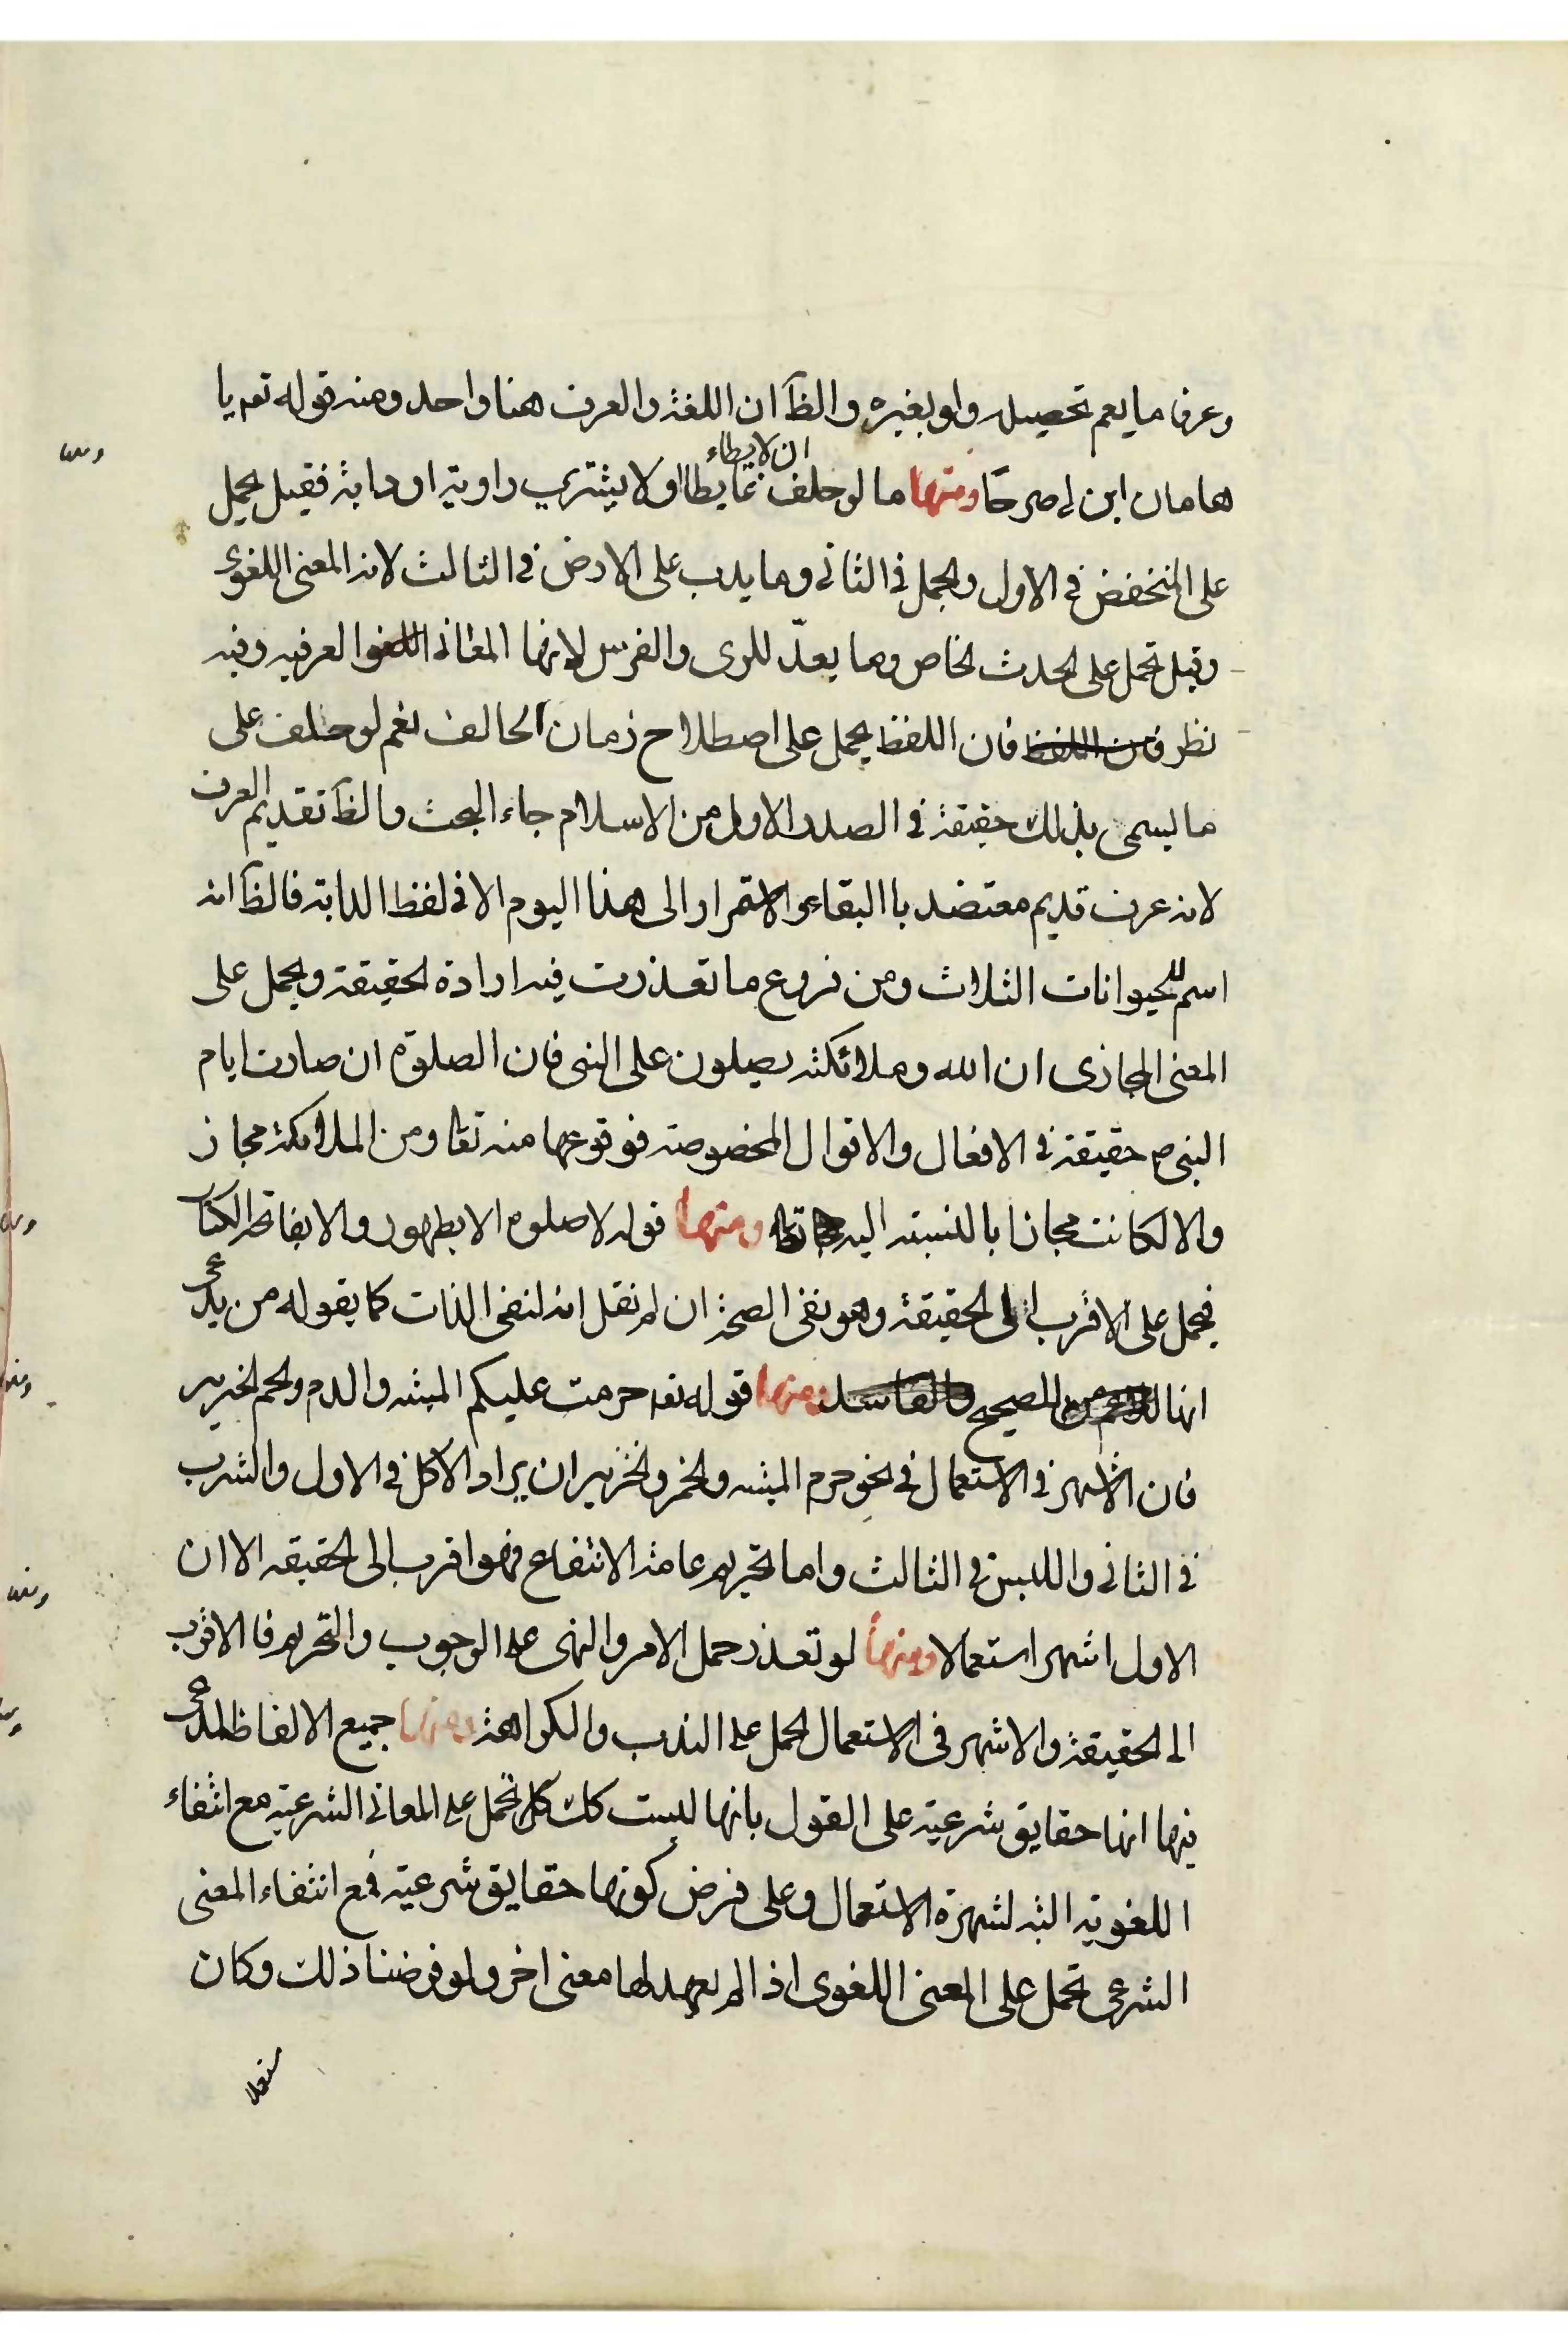 وعرفا ما يعم تحصيله ولو بغيره والظ ان اللغة والعرف هنا واحد ومنه قوله تعه يا
هامان ابن لي صرحا ومنها ما لو حلف ان لا يطاء او لا يشتري راوية او دابة فقيل يحمل
على المنخفض في الاول والجمل في الثاني وما يدب على الارض في الثالث لانه المعنى اللغوي
وقيل تحمل على الحدث الخاص وما يعدّ للري والفرس لانها المعاني العرفيه وفيه
نظر فان اللفظ يحمل على اصطلاح زمان الحالف نعم لو حلف على
ما يسمى بذلك حقيقة في الصدر الاول من الاسلام جاء البحث والظ تقديم العرف
لانه عرف قديم معتضد باالبقاء والاستمرار الى هذا اليوم الا في لفظ الدابة فالظ انه
اسم للحيوانات الثلاث ومن فروع ما تعذرت فيه ارادة الحقيقة ويحمل على
المعنى المجازى ان الله وملائكته يصلون على النبى فان الصلوة ان صارت ايام
النبى ص حقيقة في الافعال والاقوال المخصوصة فوقوعها منه تعا ومن الملائكة مجاز
والا لكانت مجازا بالنسبة اليه تعا ومنها قوله لا صلوه الا بطهور والا بفاتحة الكتاب
فيحمل على الاقرب الى الحقيقة وهو نفى الصحة ان لم نقل انه لنفى الذات كما يقوله من يدعى
انها للصحيح ومنها قوله تعه حرمت عليكم الميته والدم ولحم الخنزير
فان الاشهر في الاستعمال في نحو حرم الميته والخمر والخنزير ان يراد الاكل في الاول والشرب
في الثاني واللبس في الثالث واما تحريم عامة الانتفاع فهو اقرب الى الحقيقه الا ان
الاول اشهر استعمالا ومنها لو تعذر حمل الامر والنهى على الوجوب والتحريم فالاقرب
الى الحقيقة والاشهر فى الاستعمال الحمل على الندب والكراهة ومنها جميع الالفاظ المدعى
فيها انها حقايق شرعية على القول بانها ليست كك كل تحمل على المعاني الشرعية مع انتفاء
اللغوية البته لشهرة الاستعمال وعلى فرض كونها حقايق شرعية فمع انتفاء المعنى
الشرعى تحمل على المعنى اللغوى اذا لم يعهد لها معنى اخر ولو فرضنا ذلك وكان